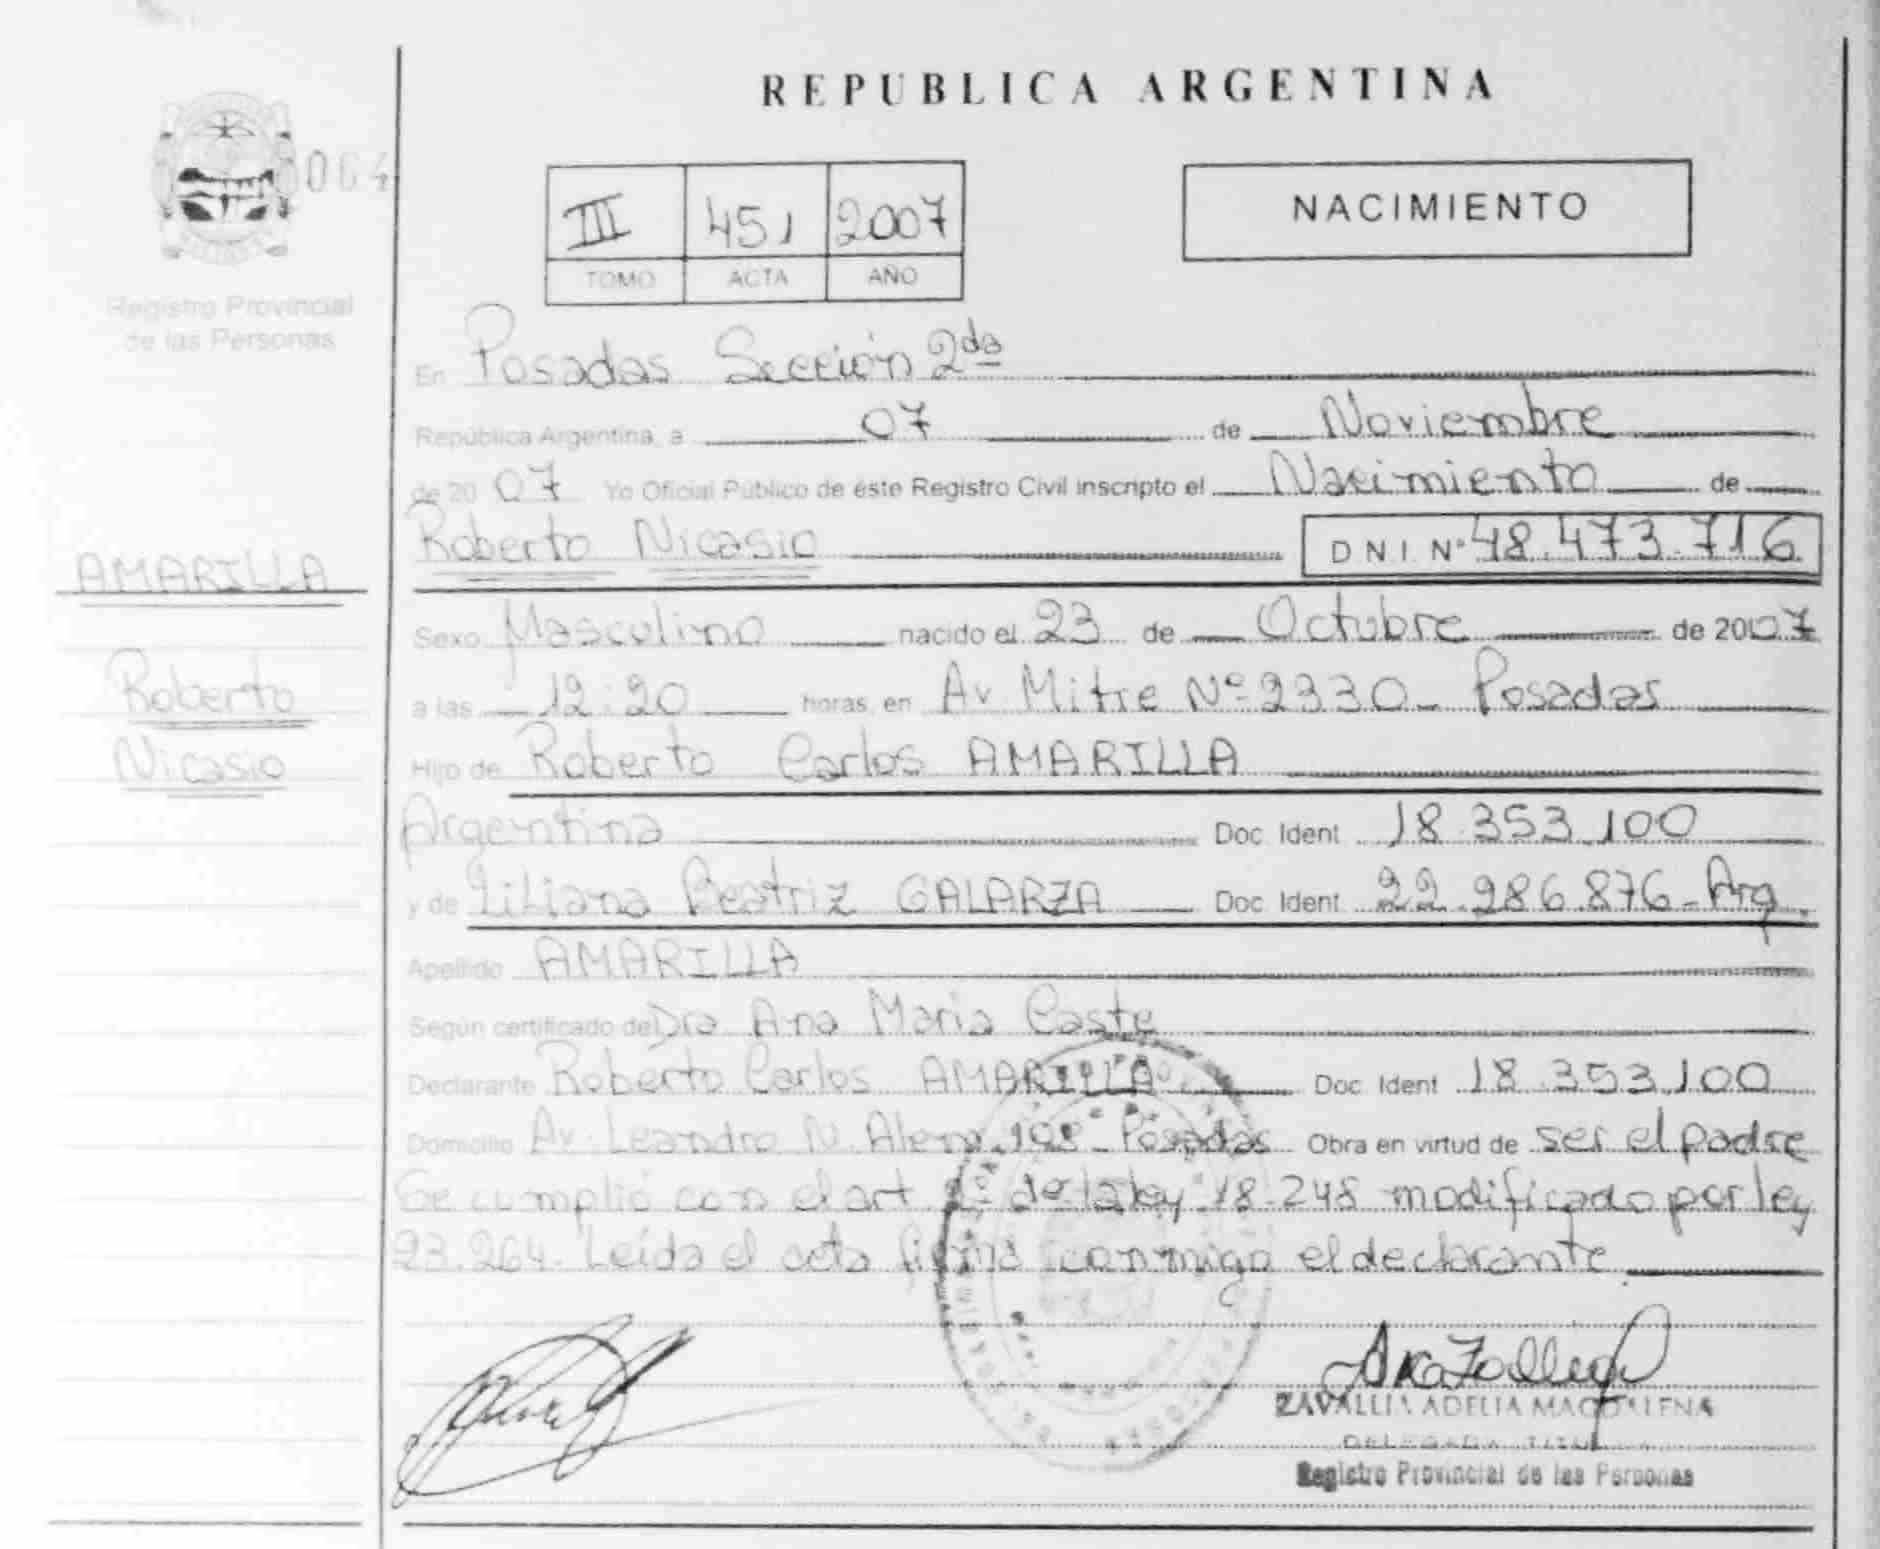 REPUBLICA ARGENTINA
III 451 2007
TOMO ACTA AÑO
NACIMIENTO
Registro Provincial
de las Personas
AMARILLA
Roberto
Nicasio
En Posadas Sección 2da
República Argentina, a 07 de Noviembre
de 2007 Yo Oficial Público de éste Registro Civil inscripto el Nacimiento de
Roberto Nicasio DNI Nº 48.473.716
Sexo Masculino nacido el 23 de Octubre de 2007
a las 12:20 horas, en Av Mitre Nº 2330 - Posadas
Hijo de Roberto Carlos AMARILLA
Argentina Doc Ident 18.353.100
y de Liliana Beatriz GALARZA Doc Ident 22.986.876 - Arg.
Apellido AMARILLA
Según certificado de Dra Ana Maria Caste
Declarante Roberto Carlos AMARILLA Doc Ident 18.353.100
Domicilio Av. Leandro N. Alem - Posadas Obra en virtud de ser el padre
Se cumplió con el art de la ley 18.248 modificado por ley
23.264. Leída el acta firma conmigo el declarante.
ZAVALLIA ADELIA MAGDALENA
DELEGADA TITULAR
Registro Provincial de las Personas